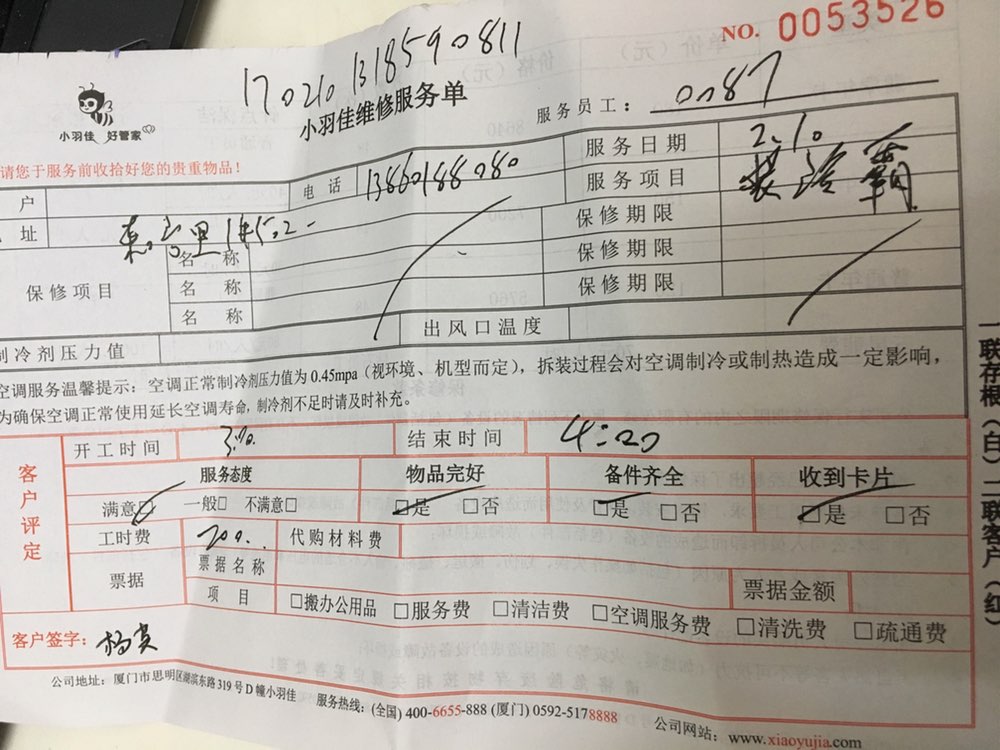 NO. 0053526
1702101318590811
小羽佳 好管家
小羽佳维修服务单
服务员工： 0087
请您于服务前收拾好您的贵重物品！
户 电话 13860188080 服务日期 2.10
服务项目 装浴霸
址
保修项目 名称 保修期限
名称 保修期限
名称 保修期限
制冷剂压力值 出风口温度
空调服务温馨提示：空调正常制冷剂压力值为0.45mpa（视环境、机型而定），拆装过程会对空调制冷或制热造成一定影响，
为确保空调正常使用延长空调寿命，制冷剂不足时请及时补充。
客户评定
开工时间 结束时间 4:20
服务态度 物品完好 备件齐全 收到卡片
满意□ 一般□ 不满意□ □是 □否 □是 □否 □是 □否
工时费 200. 代购材料费
票据 票据名称 票据金额
项目 □搬办公用品 □服务费 □清洁费 □空调服务费 □清洗费 □疏通费
客户签字：
公司地址：厦门市思明区湖滨东路319号D幢小羽佳 服务热线：(全国) 400-6655-888 (厦门) 0592-5178888
公司网站：www.xiaoyujia.com
一联存根（白）二联客户（红）